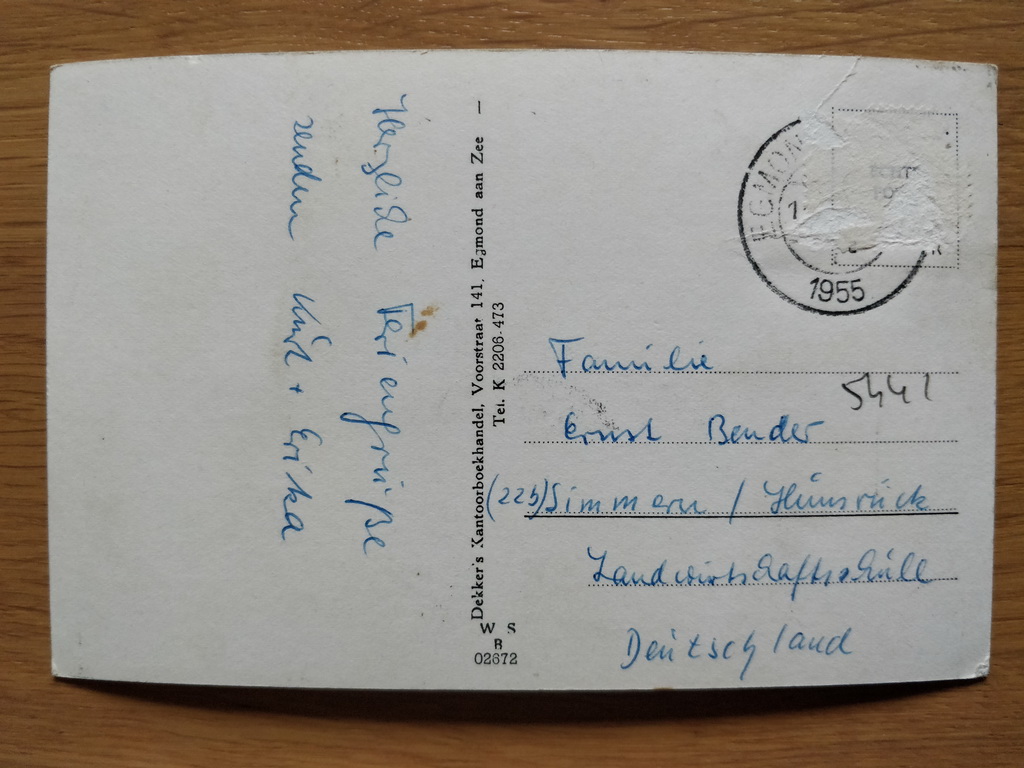 Herzliche Feriengrüße
senden Kurt + Erika
Dekker's Kantoorboekhandel, Voorstraat 141, Egmond aan Zee –
Tel. K 2206-473
W S
B
02672
EGMON
1955
ECHT
Familie
5441
Ernst Bender
(22b) Simmern / Hunsrück
Landwirtschaftsschule
Deutschland